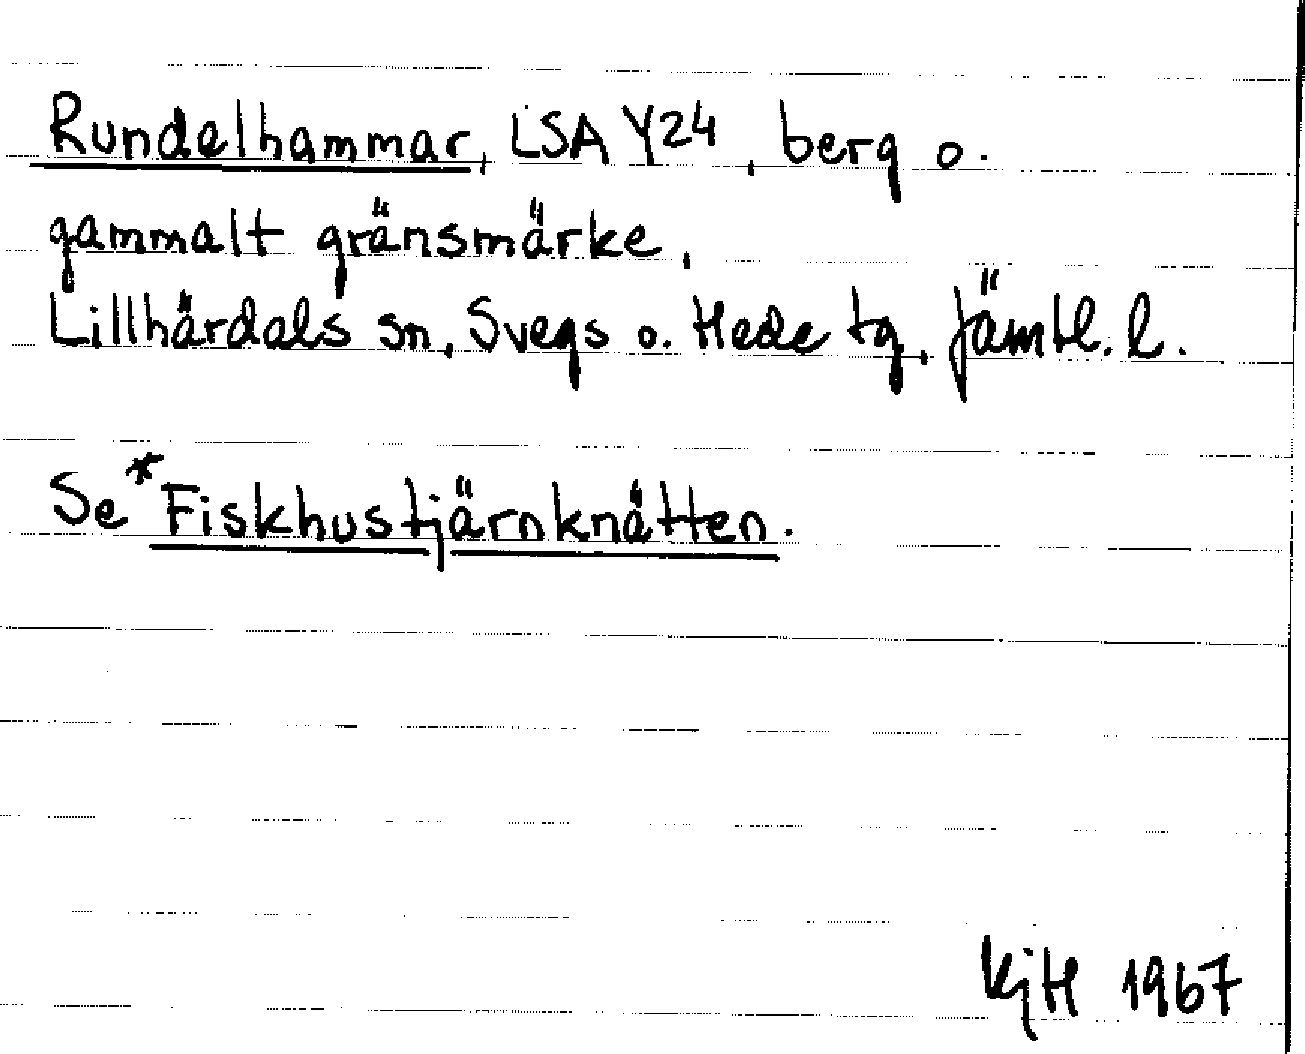 Rundelhammar, LSA Y24, berg o.
gammalt gränsmärke,
Lillhärdals sn, Svegs o. Hede tg, Jämtl. l.
Se *Fiskhustjärnknätten.
KjH 1967